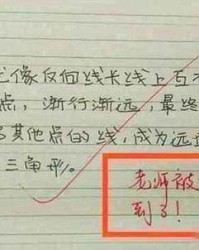 像反向线长线上互不
点，渐行渐远，最终
其他点的线，成为远
三角形。
老师被
到了！